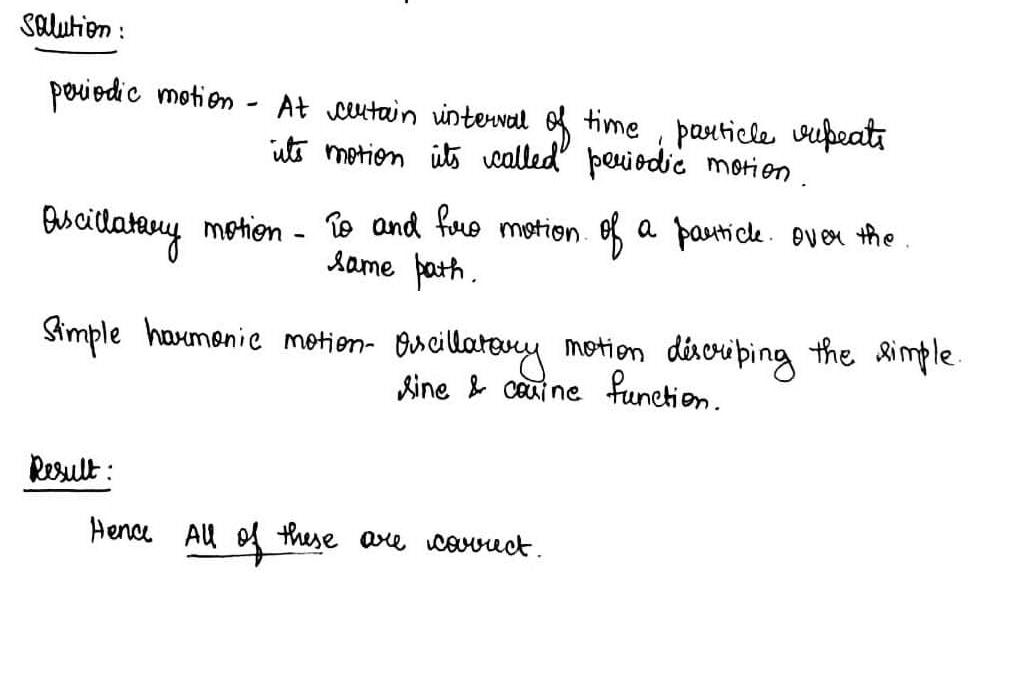 Solution :
periodic motion - At certain interval of time, particle repeats
its motion its called periodic motion.
Oscillatory motion - To and fro motion of a particle. over the.
same path.
Simple harmonic motion - Oscillatory motion describing the simple.
sine & cosine function.
Result :
Hence All of these are correct.